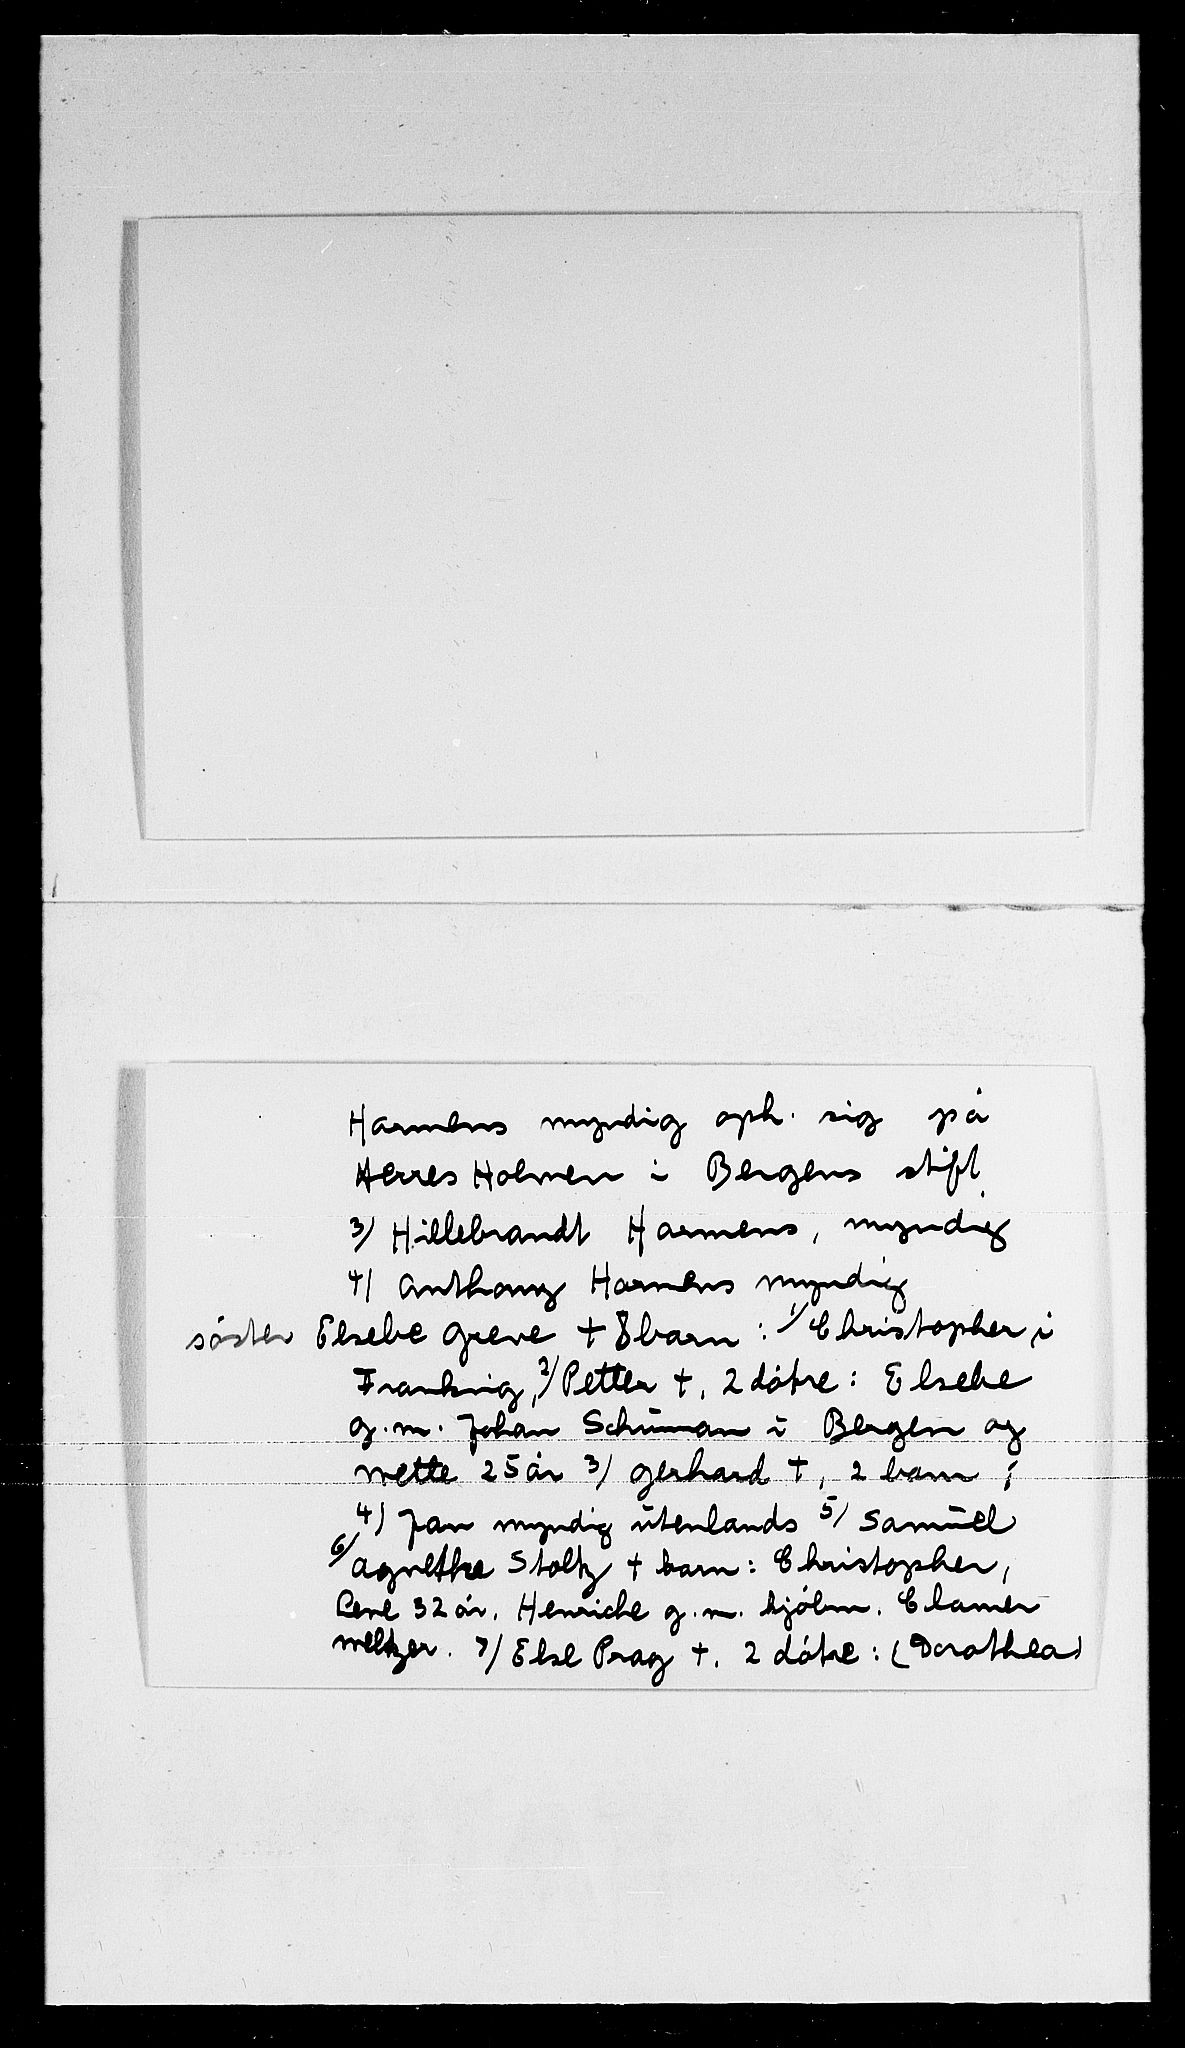 Harmens myndig oph. sig på
Herres Holmen i Bergens stift
3/ Hillebrandt Harmens, myndig
4/ Anthony Harmens myndig
søster Elsebe Greve + 8 barn: 1/ Christopher i
Frankrig, 2/ Petter +, 2 døtre: Elsebe
g.m. Johan Schuman i Bergen og
Mette 25 år 3/ Gerhard +, 2 barn i
4) Jan myndig utenlands 5/ Samuel
6/ Agnethe Stoltz + barn: Christopher,
Lene 32 år, Henriche g.m. kjøbm. Clamer
Meltzer. 7/ Else Prag +. 2 døtre: (Dorothea)